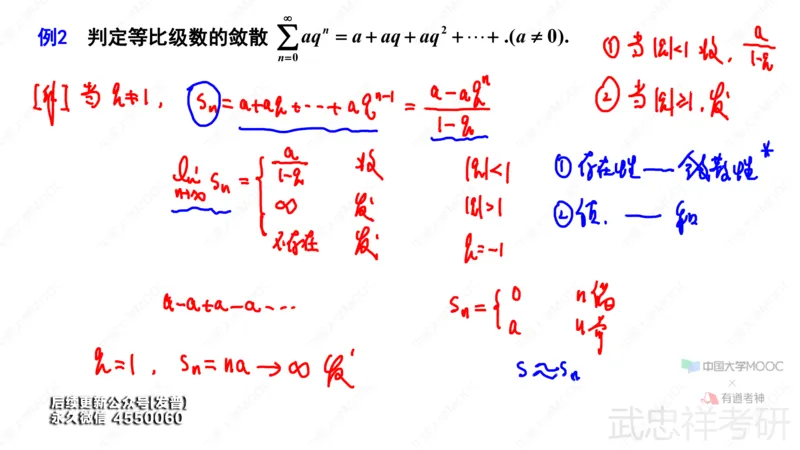 例2 判定等比级数的敛散 $\sum_{n=0}^{\infty} aq^n = a + aq + aq^2 + \cdots + .(a \neq 0).$
① 当 |q|<1 收, $\frac{a}{1-q}$
② 当 |q|≥1, 发
[解] 当 q≠1, $S_n = a+aq+\cdots+aq^{n-1} = \frac{a-aq^n}{1-q}$
$\lim_{n\to\infty} S_n =$ { $\frac{a}{1-q}$ 收 |q|<1
∞ 发 |q|>1
不存在 发 q=-1
① 存在性 — 敛散性 *
② 值. — 和
a-a+a-a-...
$S_n =$ { 0 n 偶
a n 奇
q=1, $S_n = na \to \infty$ 发
$S \approx S_n$
中国大学MOOC
×
有道考神
后续更新公众号[发普]
永久微信 4550060
武忠祥考研